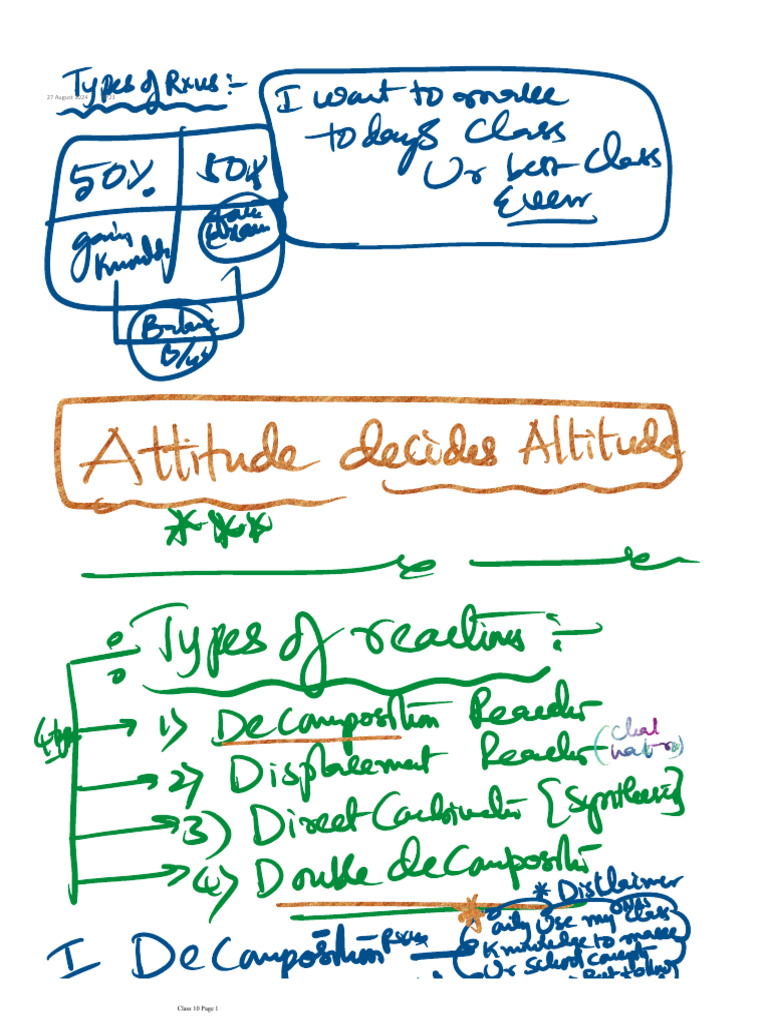 Types of Rxns :-
27 August 2024
I want to make
todays Class
Ur best Class
Ever
50%. 50%
gain
Balance
B/w
Attitude decides Altitude
***
Types of reactions :-
1) Decomposition Reaction
2) Displacement Reaction
3) Direct Combination [Synthesis]
4) Double decomposition
* Disclaimer
only Use my class
Knowledge to make
Ur School concept
I Decomposition Rxns
Class 10 Page 1